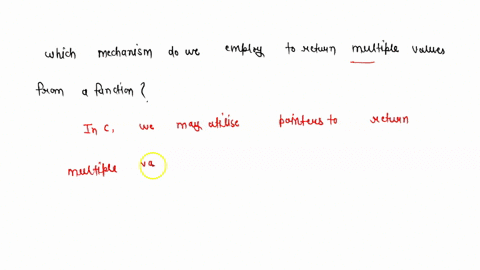 which mechanism do we employ to return multiple values
from a function?
In C, we may utilise pointers to return
multiple va